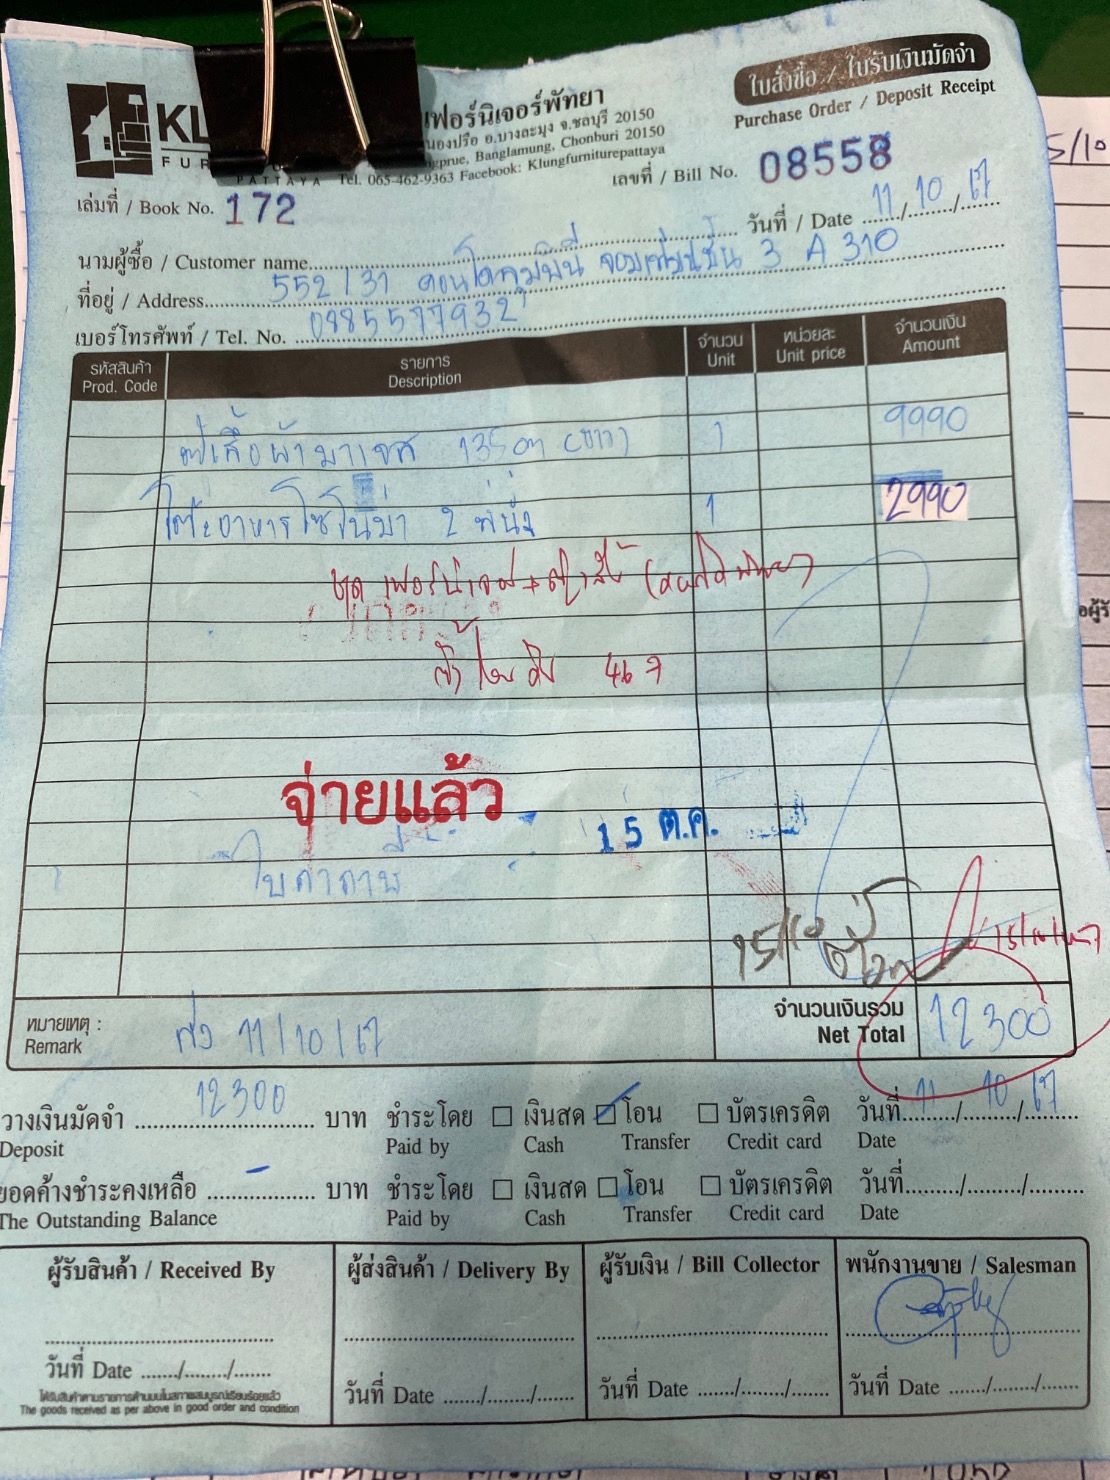 KL
FUR
PATTAYA
เฟอร์นิเจอร์พัทยา
นองปรือ อ.บางละมุง จ.ชลบุรี 20150
gprue, Banglamung, Chonburi 20150
Tel. 065-462-9363 Facebook: Klungfurniturepattaya
ใบสั่งซื้อ / ใบรับเงินมัดจำ
Purchase Order / Deposit Receipt
เลขที่ / Bill No. 08558
เล่มที่ / Book No. 172
วันที่ / Date 11/10/67
นามผู้ซื้อ / Customer name
ที่อยู่ / Address 552/31 คอนโดลุมพินี จอมเทียน 3 A 310
เบอร์โทรศัพท์ / Tel. No. 0985577932
รหัสสินค้า รายการ จำนวน หน่วยละ จำนวนเงิน
Prod. Code Description Unit Unit price Amount
ตู้เสื้อผ้า 135 cm (ขาว) 1 9990
โต๊ะอาหารโซโนม่า 2 ที่นั่ง 1 2990
ชุด เฟอร์นิเจอร์
467
จ่ายแล้ว
15 ต.ค.
15/10
15/10/67
หมายเหตุ : ส่ง 11/10/67
Remark
จำนวนเงินรวม 12300
Net Total
วางเงินมัดจำ 12300 บาท ชำระโดย เงินสด โอน บัตรเครดิต วันที่ 11/10/67
Deposit Paid by Cash Transfer Credit card Date
ยอดค้างชำระคงเหลือ - บาท ชำระโดย เงินสด โอน บัตรเครดิต วันที่ ....../....../......
The Outstanding Balance Paid by Cash Transfer Credit card Date
ผู้รับสินค้า / Received By ผู้ส่งสินค้า / Delivery By ผู้รับเงิน / Bill Collector พนักงานขาย / Salesman
วันที่ Date ....../....../...... วันที่ Date ....../....../...... วันที่ Date ....../....../...... วันที่ Date ....../....../......
ได้รับสินค้าตามรายการด้านบนในสภาพสมบูรณ์เรียบร้อยแล้ว
The goods received as per above in good order and condition